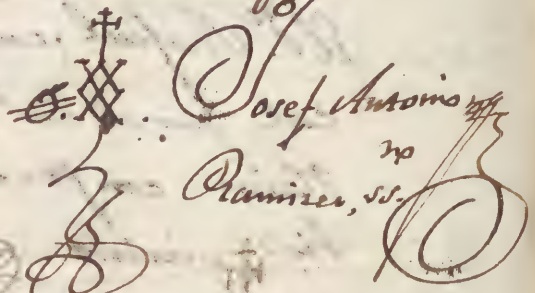 Yo
Josef Antonio
Ramirez, ss.